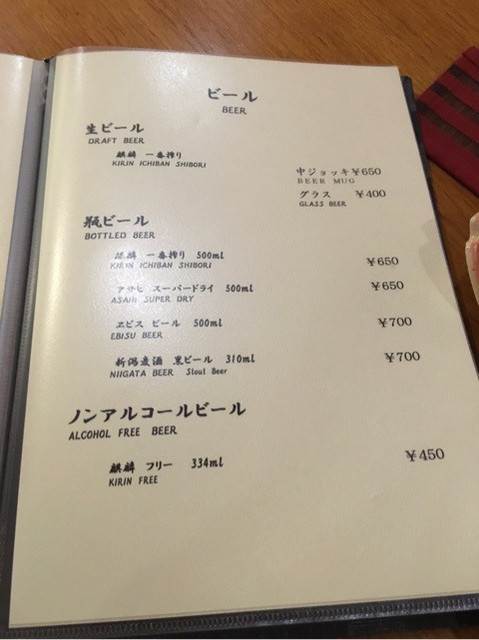 ビール
BEER
生ビール
DRAFT BEER
麒麟 一番搾り
KIRIN ICHIBAN SHIBORI
中ジョッキ ¥650
BEER MUG
グラス ¥400
GLASS BEER
瓶ビール
BOTTLED BEER
麒麟 一番搾り 500ml ¥650
KIRIN ICHIBAN SHIBORI
アサヒ スーパードライ 500ml ¥650
ASAHI SUPER DRY
ヱビス ビール 500ml ¥700
EBISU BEER
新潟麦酒 黒ビール 310ml ¥700
NIIGATA BEER Stout Beer
ノンアルコールビール
ALCOHOL FREE BEER
麒麟 フリー 334ml ¥450
KIRIN FREE